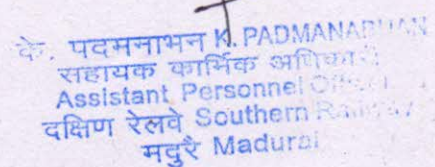 के. पदमनाभन K. PADMANABHAN
सहायक कार्मिक अधिकारी
Assistant Personnel Officer
दक्षिण रेलवे Southern Railway
मदुरै Madurai